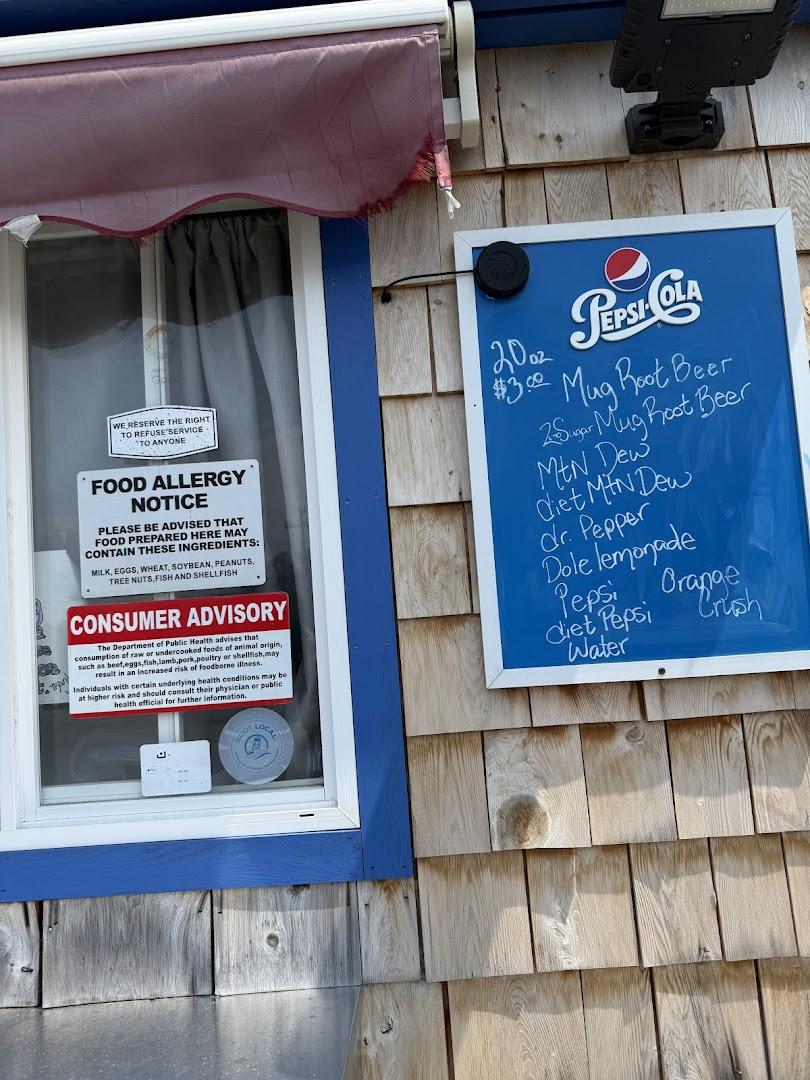 WE RESERVE THE RIGHT
TO REFUSE SERVICE
TO ANYONE
FOOD ALLERGY
NOTICE
PLEASE BE ADVISED THAT
FOOD PREPARED HERE MAY
CONTAIN THESE INGREDIENTS:
MILK, EGGS, WHEAT, SOYBEAN, PEANUTS,
TREE NUTS,FISH AND SHELLFISH
CONSUMER ADVISORY
The Department of Public Health advises that
consumption of raw or undercooked foods of animal origin,
such as beef,eggs,fish,lamb,pork,poultry or shellfish,may
result in an increased risk of foodborne illness.
Individuals with certain underlying health conditions may be
at higher risk and should consult their physician or public
health official for further information.
LOCAL
PEPSI-COLA
20 oz
$3.00
Mug Root Beer
Sugar Mug Root Beer
MtN Dew
diet MtN Dew
dr. Pepper
Dole lemonade
Pepsi
diet Pepsi
Water
Orange
Crush